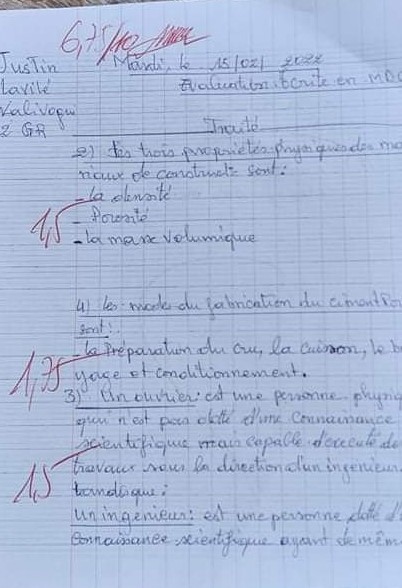 6,75/10
Justin Mardi, le 15/02/2022
Lavilé Evaluation écrite en MDC
Valivogui
2 GR Traité
2) Les trois propriétés physiques des ma
riaux de construct° sont:
- la densité
1,5 - Porosité
- la masse volumique
4) les modes du fabrication du ciment
sont:
- la Préparation du cru, la cuisson, le b
1,75 yage et conditionnement.
3) Un ouvrier: est une personne physiq
qui n'est pas doté d'une connaissance
scientifique mais capable d'executé de
1,5 travaux sous la direction d'un ingenieur
tandisque:
Un ingenieur: est une personne doté d'
connaissance scientifique ayant de mêm